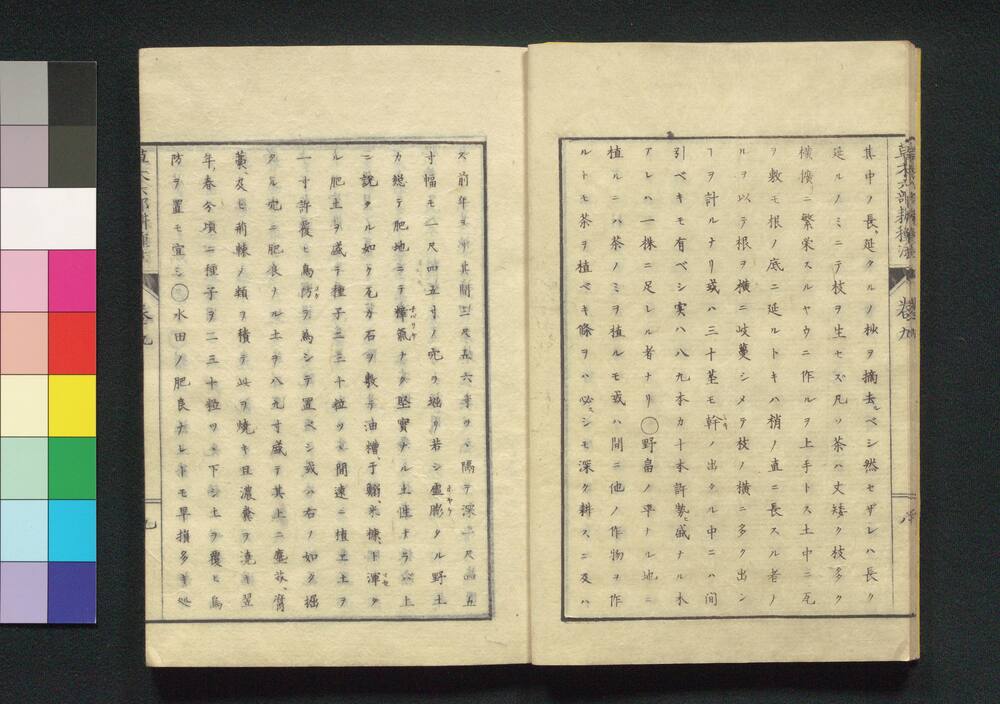 其中ノ長ク延タルノ杪ヲ摘去ルベシ然セザレハ長ク
延ルノミニテ枝ヲ生セズ凡ソ茶ハ丈矮ク枝多ク
横擴ニ繁栄スルヤウニ作ルヲ上手トス土中ニ瓦
ヲ敷モ根ノ底ニ延ルトキハ梢ノ直ニ長スル者ノ
ルヲ以テ根ヲ横ニ岐蔓シメテ枝ノ横ニ多ク出シ
ヿヲ計ルナリ或ハ三十茎モ幹ノ出タル中ニハ間
引ベキモ有ベシ実ハ八九本カ十本許勢盛ナル木
アレハ一株ニ足レル者ナリ○野畠ノ平ナル地ニ
植ルニハ茶ノミヲ植ルモ或ハ間ニ他ノ作物ヲ作
ルトモ茶ヲ植ベキ條ヲハ必シモ深ク耕スニ及ハ
草木六部耕種法 卷九
ス前年ヨリ其間三尺五六寸ツヽ隔テ深二尺四五
寸幅モ一尺四五寸ノ穴ヲ堀リ若シ虚膨タル野土
カ總テ肥地ニテ粘氣ナク堅實ナル土性ナラハ上
ニ説タル如ク瓦カ石ヲ敷テ油糟、干鰯、米糠、ト渾タ
ル肥土ヲ盛テ種子二三十粒ツヽ間遠ニ植土土ヲ
一寸許覆ヒ鳥防ヲ為シテ置ベシ或ハ右ノ如ク掘
タル穴ニ肥良ナル土ヲ八九寸盛テ其上ニ塵芥、腐
藁、及ヒ荊棘ノ類ヲ積テ此ヲ焼キ且濃糞ヲ澆キ翌
年、春分頃ニ種子ヲ二三十粒ツヽ下シ土ヲ覆ヒ鳥
防ヲ置モ宜シ○水田ノ肥良ナレトモ旱損多キ処